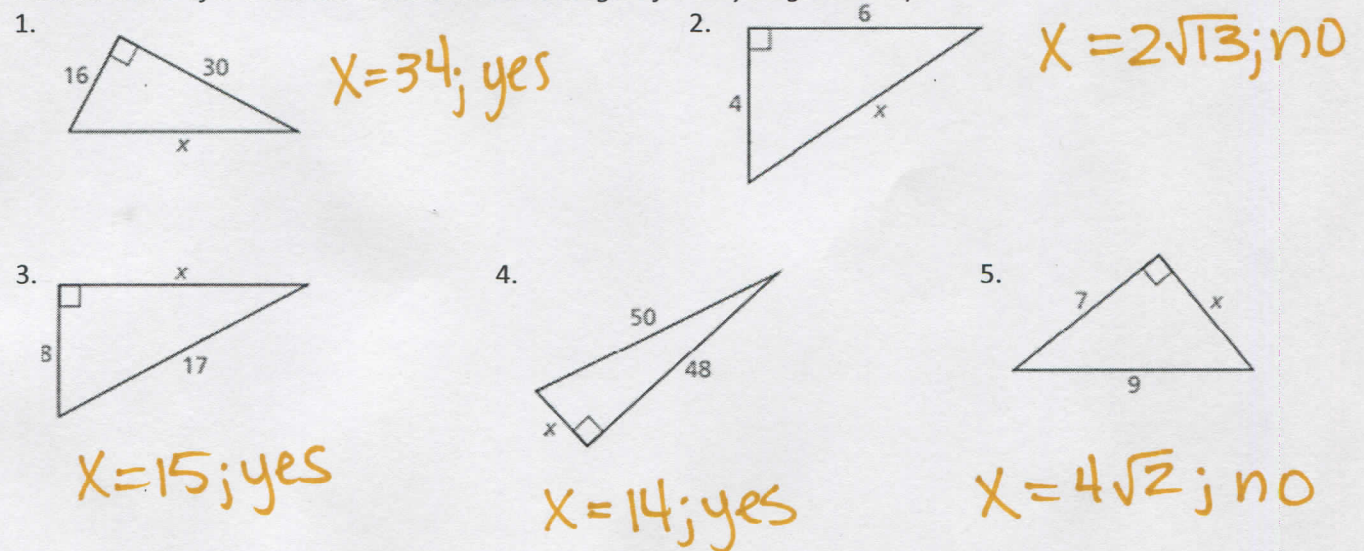 1.
16
30
x
X=34; yes
2.
6
4
x
X=2√13; no
3.
x
8
17
X=15; yes
4.
50
48
x
X=14; yes
5.
7
x
9
X=4√2; no